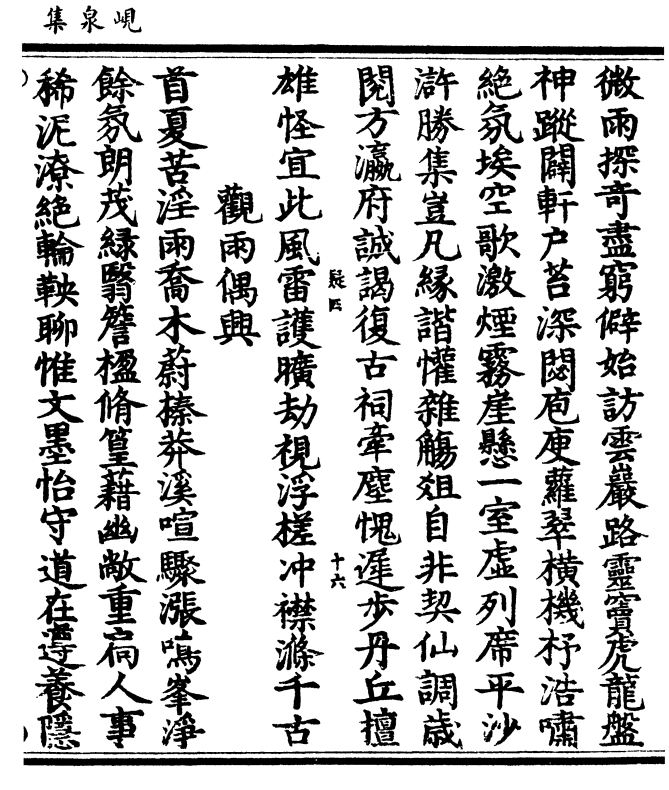 峴泉集
微雨探奇盡窮僻始訪雲巖路靈竇虎龍盤
神蹤闢軒户苔深閟庖庾蘿翠橫機杼浩嘯
絶氛埃空歌激煙霧崖懸一室虛列席平沙
滸勝集豈凡緣諧懽雜觴俎自非契仙調歲
閱方瀛府誠謁復古祠牽塵愧遲步丹丘擅
雄怪宜此風雷護曠劫視浮槎冲襟滌千古
觀雨偶興
首夏苦淫雨喬木蔚榛莽溪喧驟漲鳴峯淨
餘氛朗茂緑翳簷楹脩篁藉幽敞重扃人事
稀泥潦絶輪鞅聊惟文墨怡守道在遵養隱
疑四
十六